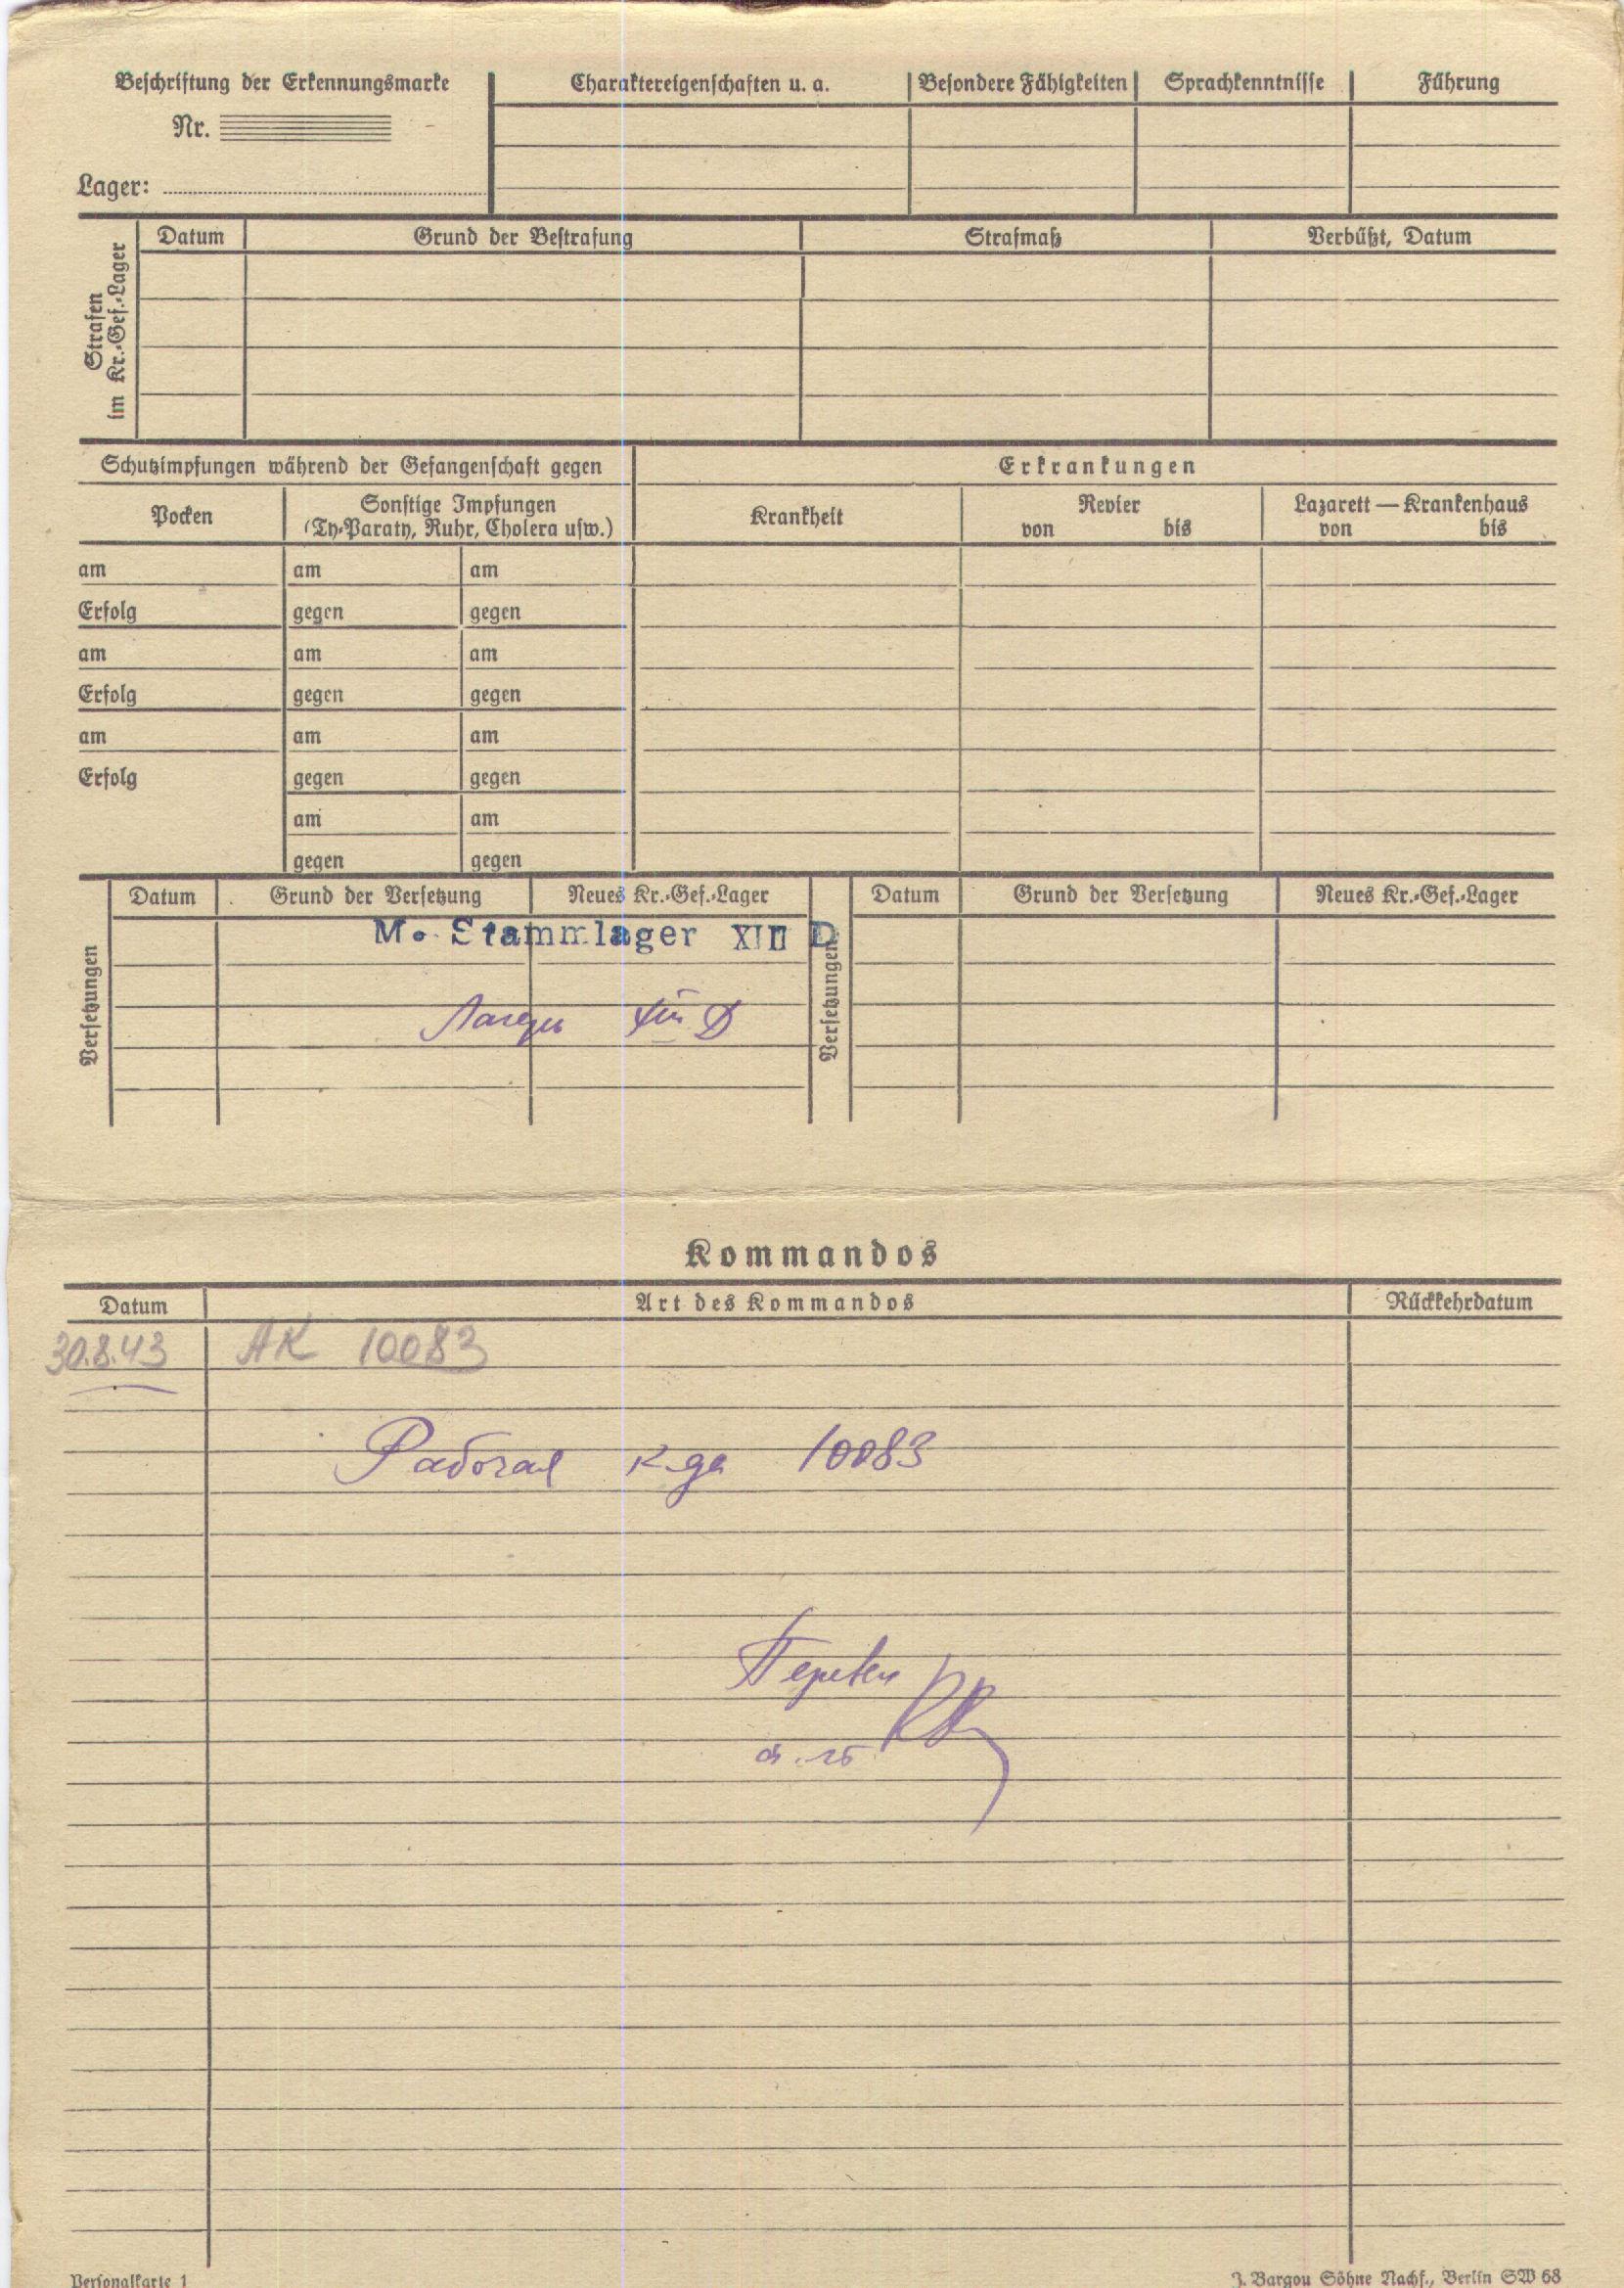 Beschriftung der Erkennungsmarke
Nr.
Lager:
Charaktereigenschaften u. a.
Besondere Fähigkeiten
Sprachkenntnisse
Führung
Strafen
im Kr.-Gef.-Lager
Datum
Grund der Bestrafung
Strafmaß
Verbüßt, Datum
Schutzimpfungen während der Gefangenschaft gegen
Erkrankungen
Pocken
Sonstige Impfungen
(Ty-Paraty, Ruhr, Cholera usw.)
Krankheit
Revier
von bis
Lazarett — Krankenhaus
von bis
am am am
Erfolg gegen gegen
am am am
Erfolg gegen gegen
am am am
Erfolg gegen gegen
am am
gegen gegen
Versetzungen
Datum Grund der Versetzung Neues Kr.-Gef.-Lager
M. Stammlager XIII D
Лагерь XIII D
Versetzungen
Datum Grund der Versetzung Neues Kr.-Gef.-Lager
Kommandos
Datum Art des Kommandos Rückkehrdatum
30.8.43 AK 10083
Рабочая к-да 10083
Personalkarte 1
J. Bargou Söhne Nachf., Berlin SW 68